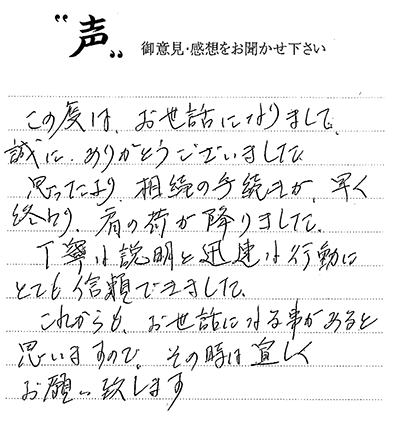 "声" 御意見・感想をお聞かせ下さい
この度は、お世話になりまして、
誠に、ありがとうございました。
思ったより 相続の手続きが、早く
終わり、肩の荷が降りました。
丁寧な説明と迅速な行動に
とても信頼できました。
これからも、お世話になる事があると
思いますので、その時は宜しく
お願い致します